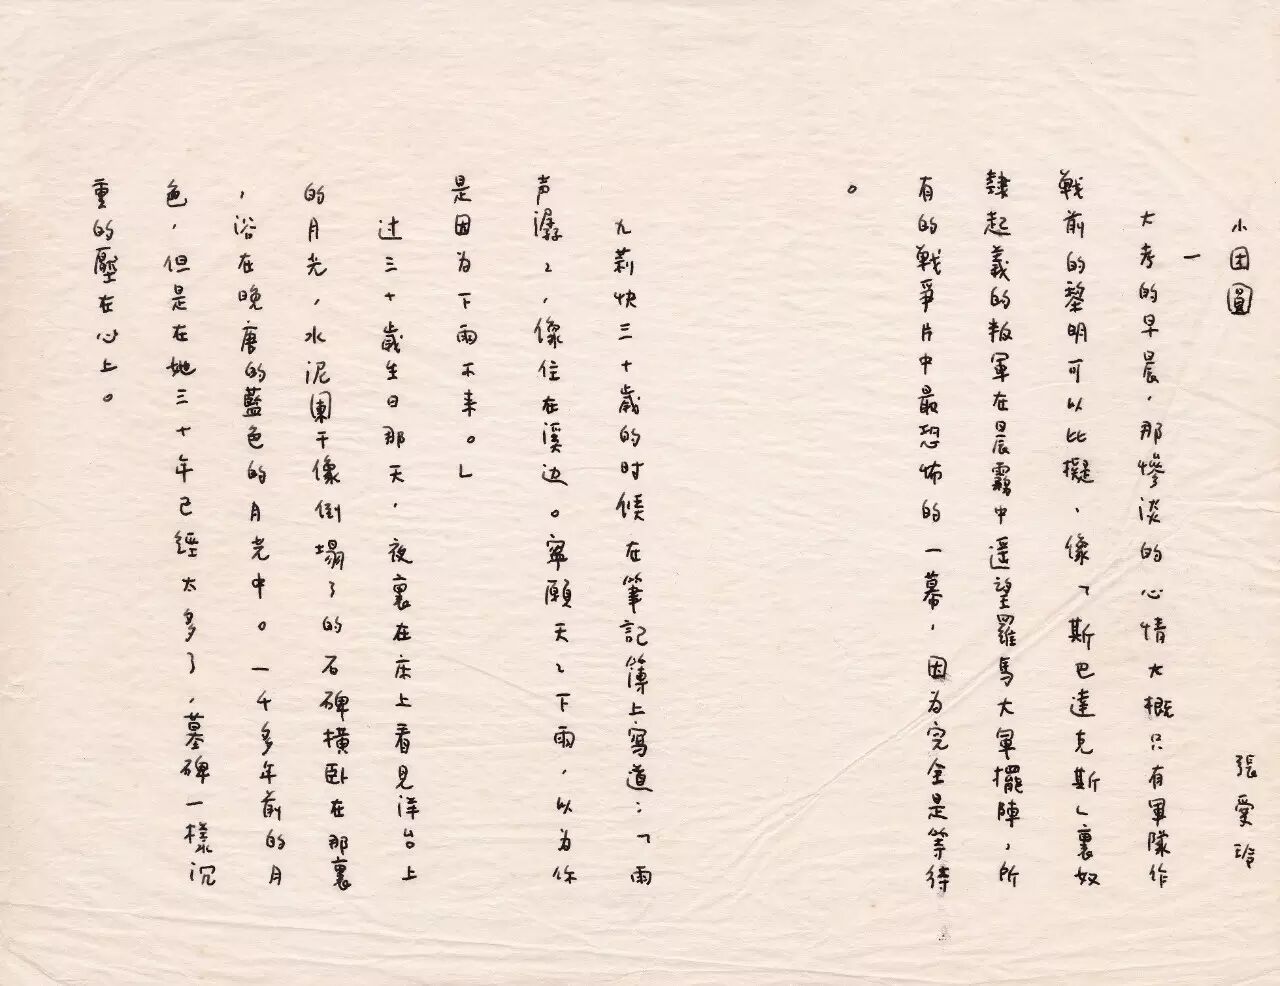 小団圓 張愛玲
一
大考的早晨，那慘淡的心情大概只有軍隊作
戰前的黎明可以比擬，像「斯巴達克斯」裏奴
隸起義的叛軍在晨霧中遥望羅馬大軍擺陣，所
有的戰爭片中最恐怖的一幕，因为完全是等待
。
九莉快三十歲的时候在筆記簿上寫道：「雨
声潺々，像住在溪边。寧願天々下雨，以为你
是因为下雨不来。」
过三十歲生日那天，夜裏在床上看見洋台上
的月光，水泥闌干像倒塌了的石碑橫卧在那裏
，浴在晚唐的藍色的月光中。一千多年前的月
色，但是在她三十年已經太多了，墓碑一樣沉
重的壓在心上。